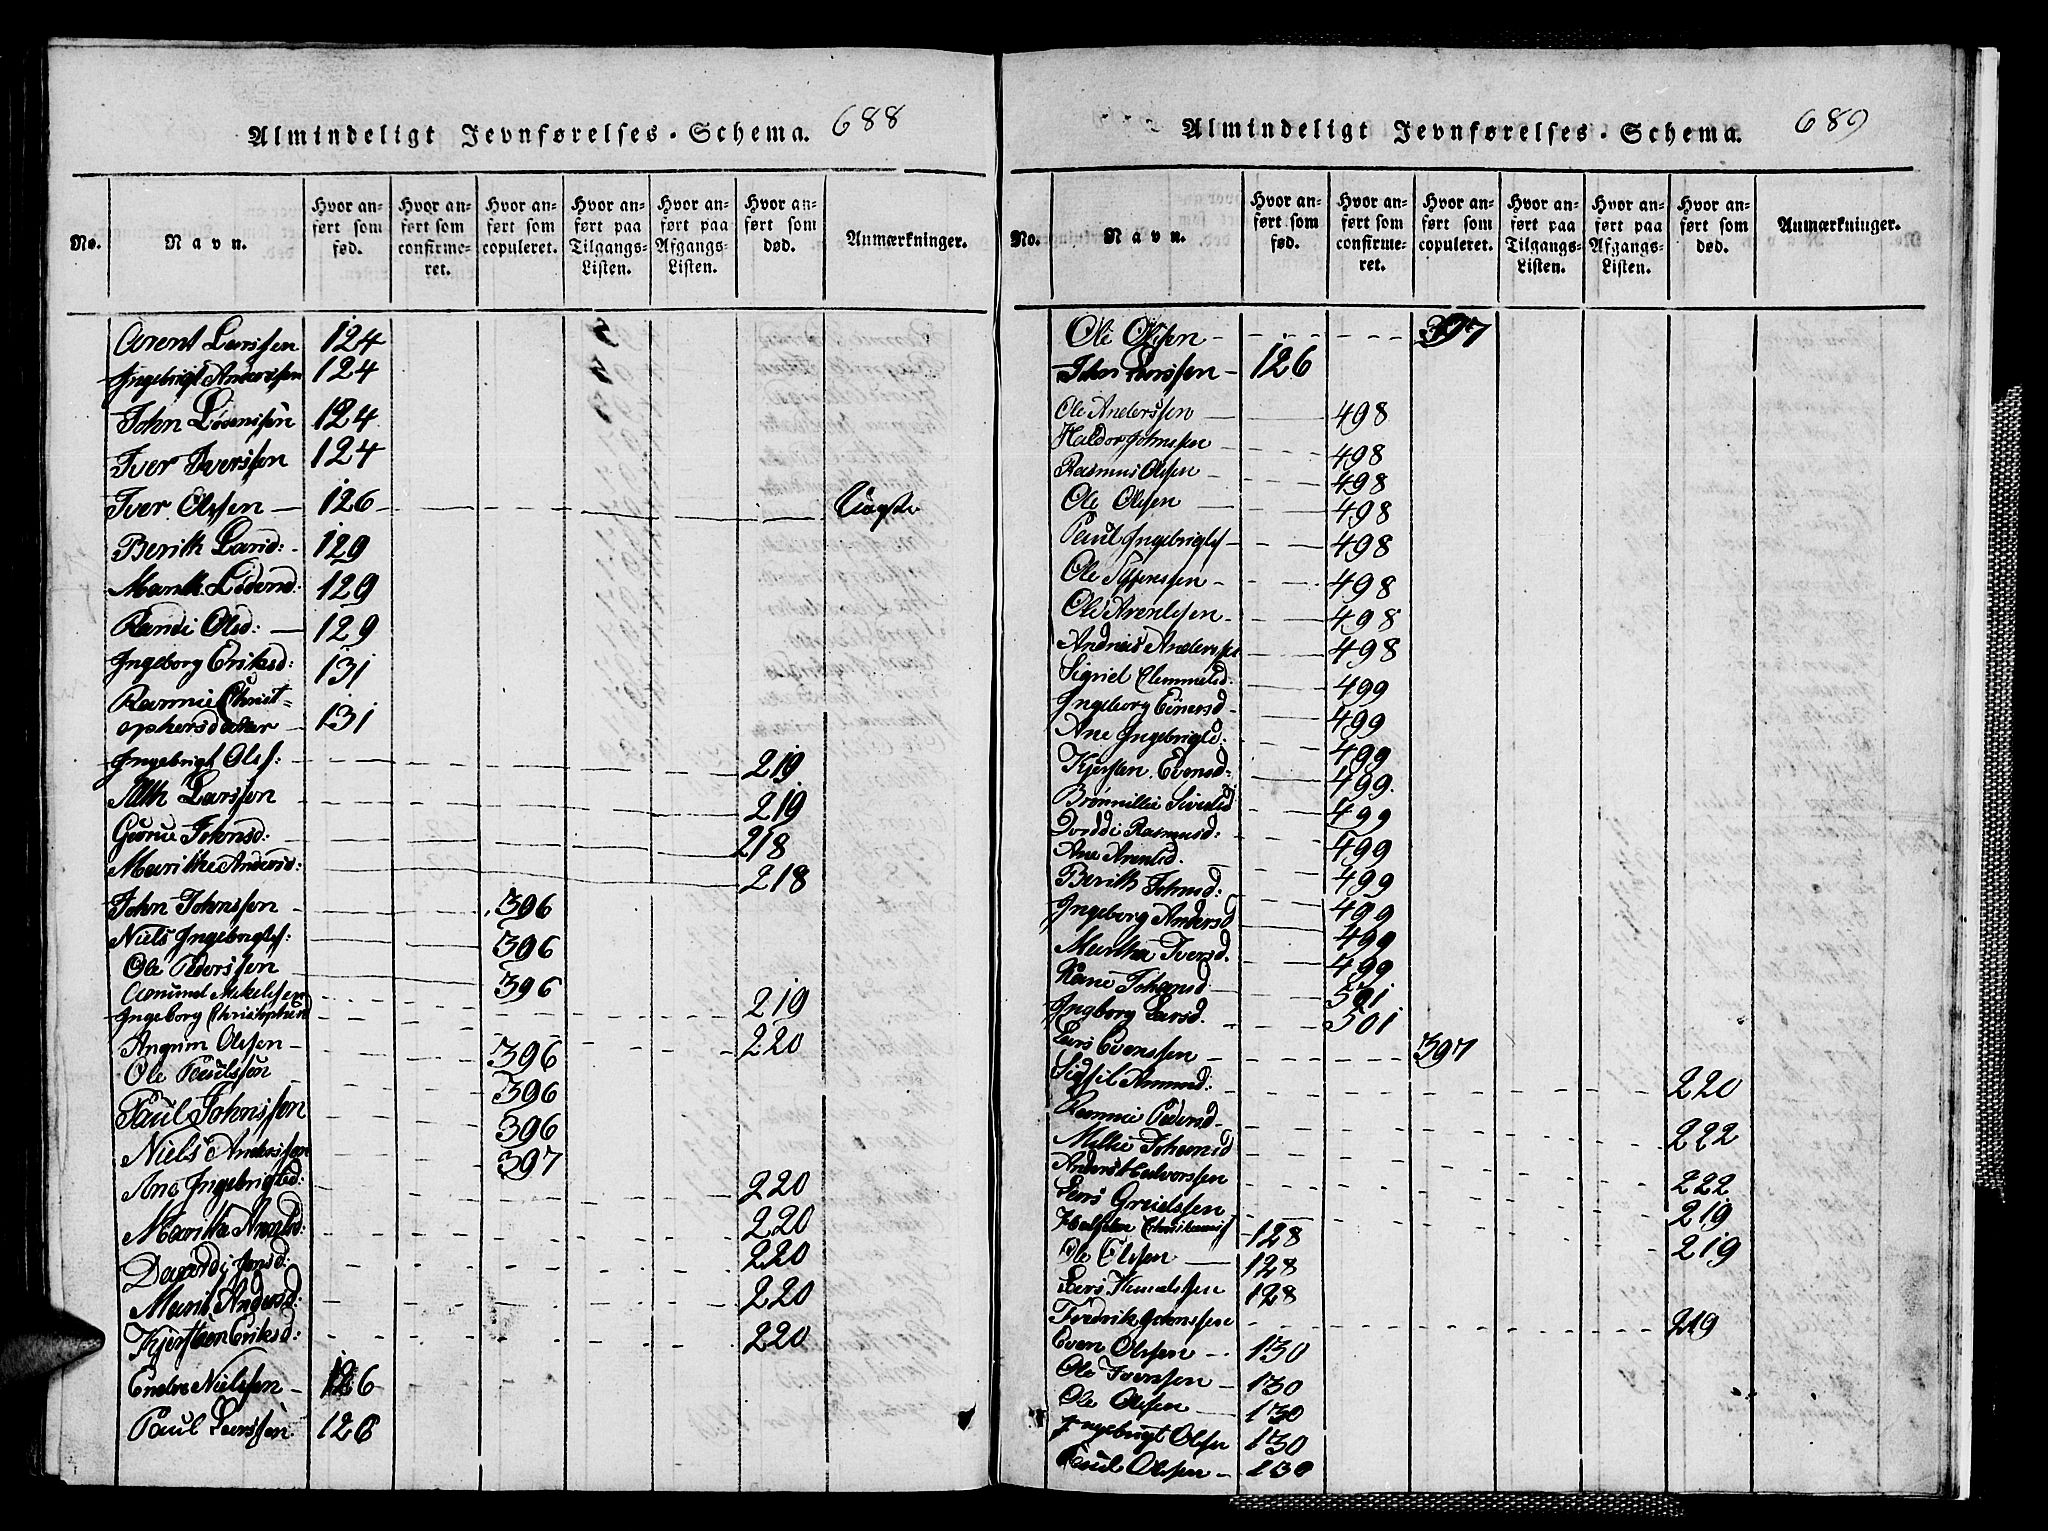 Almindeligt Jevnførelses-Schema. 688
No.
Navn.
Hvor anført som fød.
Hvor anført som confirmeret.
Hvor anført som copuleret.
Hvor anført paa Tilgangs-Listen.
Hvor anført paa Afgangs-Listen.
Hvor anført som død.
Anmærkninger.
Arent Larssen 124
Ingebrigt Anderssen 124
John 124
Iver Iverssen 124
Iver Olssen 126
Berith Larsd: 129
129
Randi Olsd: 129
Ingeborg Eriksd: 131
Rannie Christ=
ophersdatter 131
Ingebrigt Olss: 219
Larssen 219
Johnsd: 218
Marithe Andersd: 218
John Johnssen 396
Niels Ingebrigts: 396
Ole Pederssen 396
Amund Mikelssen 219
Ingeborg Christophersd 220
Olssen 396
Ole Paulssøn 396
Paul Johnssøn 396
Niels Anderssøn 397
Ane Ingebrigtsd: 220
Maritha 220
220
Marit Andersd: 220
Kjersten Eriksd: 220
Endre Nielssen 126
Paul Larssen 126
Almindeligt Jevnførelses-Schema. 689
No.
Navn.
Hvor anført som fød.
Hvor anført som confirmeret.
Hvor anført som copuleret.
Hvor anført paa Tilgangs-Listen.
Hvor anført paa Afgangs-Listen.
Hvor anført som død.
Anmærkninger.
Ole Olssen 397
John Larssen 126
Ole Anderssen 498
Haldor Johnssen 498
Rasmus Olssen 498
Ole Olssen 498
Paul Ingebrigts 498
Ole 498
Ole Arentssen 498
Andreas Anderssen 498
Sigrid Clemmetsd: 499
Ingeborg Einersd 499
Ane Ingebrigtsd: 499
Kjersten Evensd: 499.
Brønnille Siversd 499
Dorddi Rasmusd: 499
Ane Arentsd. 499
Berith Johnsd: 499
Ingeborg Andersd 499
Martha Iversd. 499
Johansd 501
Ingborg Larsd. 501
Lars Evenssen 397
Amund: 220
Rannie Pedersd 222
Johansd 222
Anders Halvorssen 219
Lars 219
128
Ole Olssen 128
Lars 128
Fredrik Johnssen 219
Even Olssen 130
Ole Ivenssen 130
Ole Olssen 130
Ingebrigt Olssen 130
Paul Olssen 130